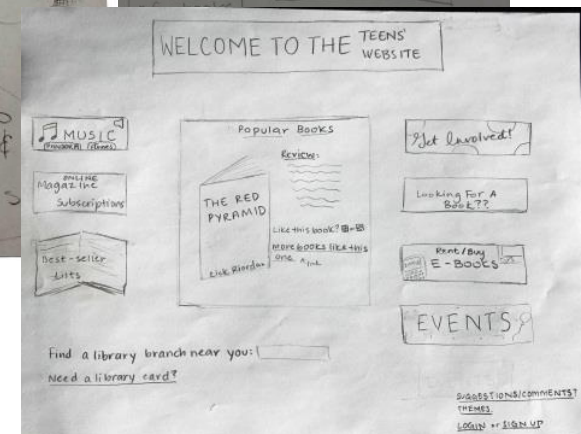 WELCOME TO THE TEENS'
WEBSITE
MUSIC
PANDORA iTunes
ONLINE
Magazine
Subscriptions
Best-seller
Lists
Popular Books
Review:
THE RED
PYRAMID
Rick Riordan
Like this book?
More books like this
one
Get Involved!
Looking For A
Book??
Rent/Buy
E-BOOKS
EVENTS
Find a library branch near you:
Need a library card?
SUGGESTIONS/COMMENTS?
THEMES
LOGIN or SIGN UP